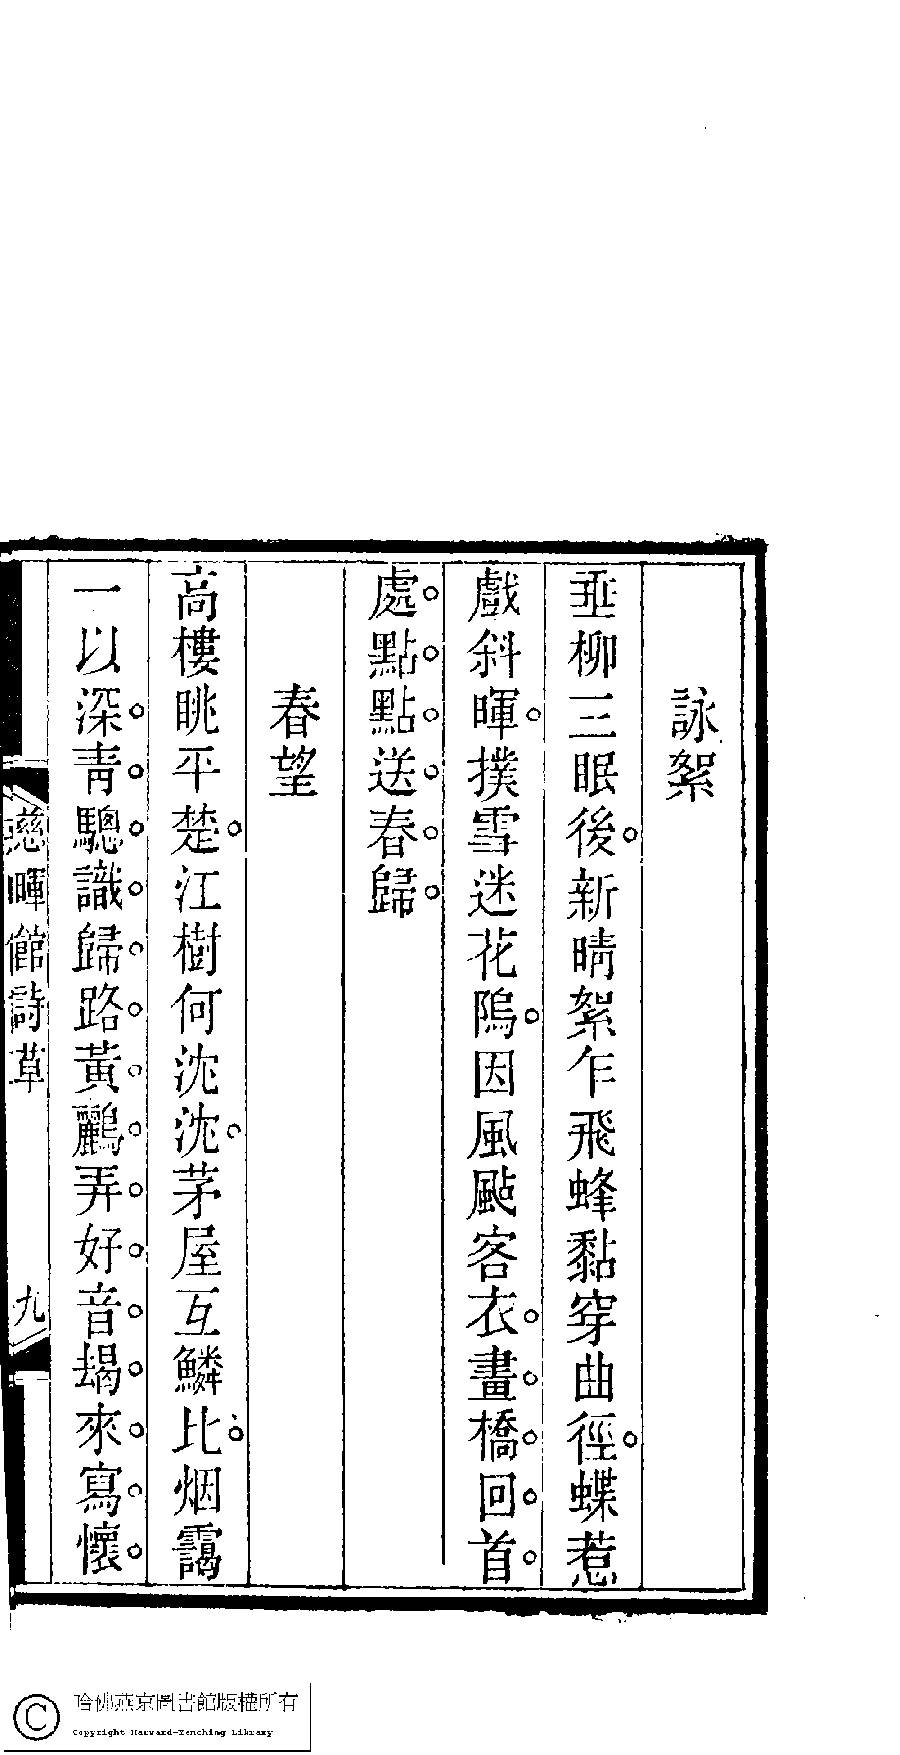 詠絮
垂柳三眠後。新晴絮乍飛蜂黏穿曲徑。蝶惹
戲斜暉。撲雪迷花隖。因風颭客衣。畫。橋。回。首。
處。點。點。送。春。歸。
春望
高樓眺平楚。江樹何沈沈。茅屋互鱗比。烟靄
一以深。靑。驄。識。歸。路。黃。鸝。弄。好。音。朅。來。寫。懷。
慈暉館詩草
九
哈佛燕京圖書館版權所有
Copyright Harvard-Yenching Library